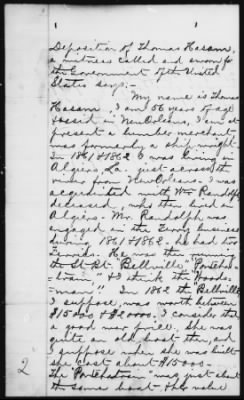 Deposition of Thomas Hasam,
a witness called and sworn for
the Government of the United
States says:-
My name is Thomas
Hasam, I am 56 years of age
reside in New Orleans, I am at
present a lumber merchant,
was formerly a ship-wright-
In 1861 & 1862 I was living in
Algiers, La. just across the
river from New Orleans. I was
acquainted with Wm Randolph
deceased, who then lived in
Algiers - Mr. Randolph was
engaged in the Ferry business
during 1861 & 1862 - he had two
Ferries. He was then
the St. Bt. "Bellville" "Pontchar-
train," & I think the "Wood-
man" In 1862 the Bellville
I suppose, was worth between
$15000 & $20000. I consider that
a good near price. She was
quite an old boat then, and
I suppose when she was built
she cost about $15000-
The Pontchatrain was just about
the same boat & the value
2